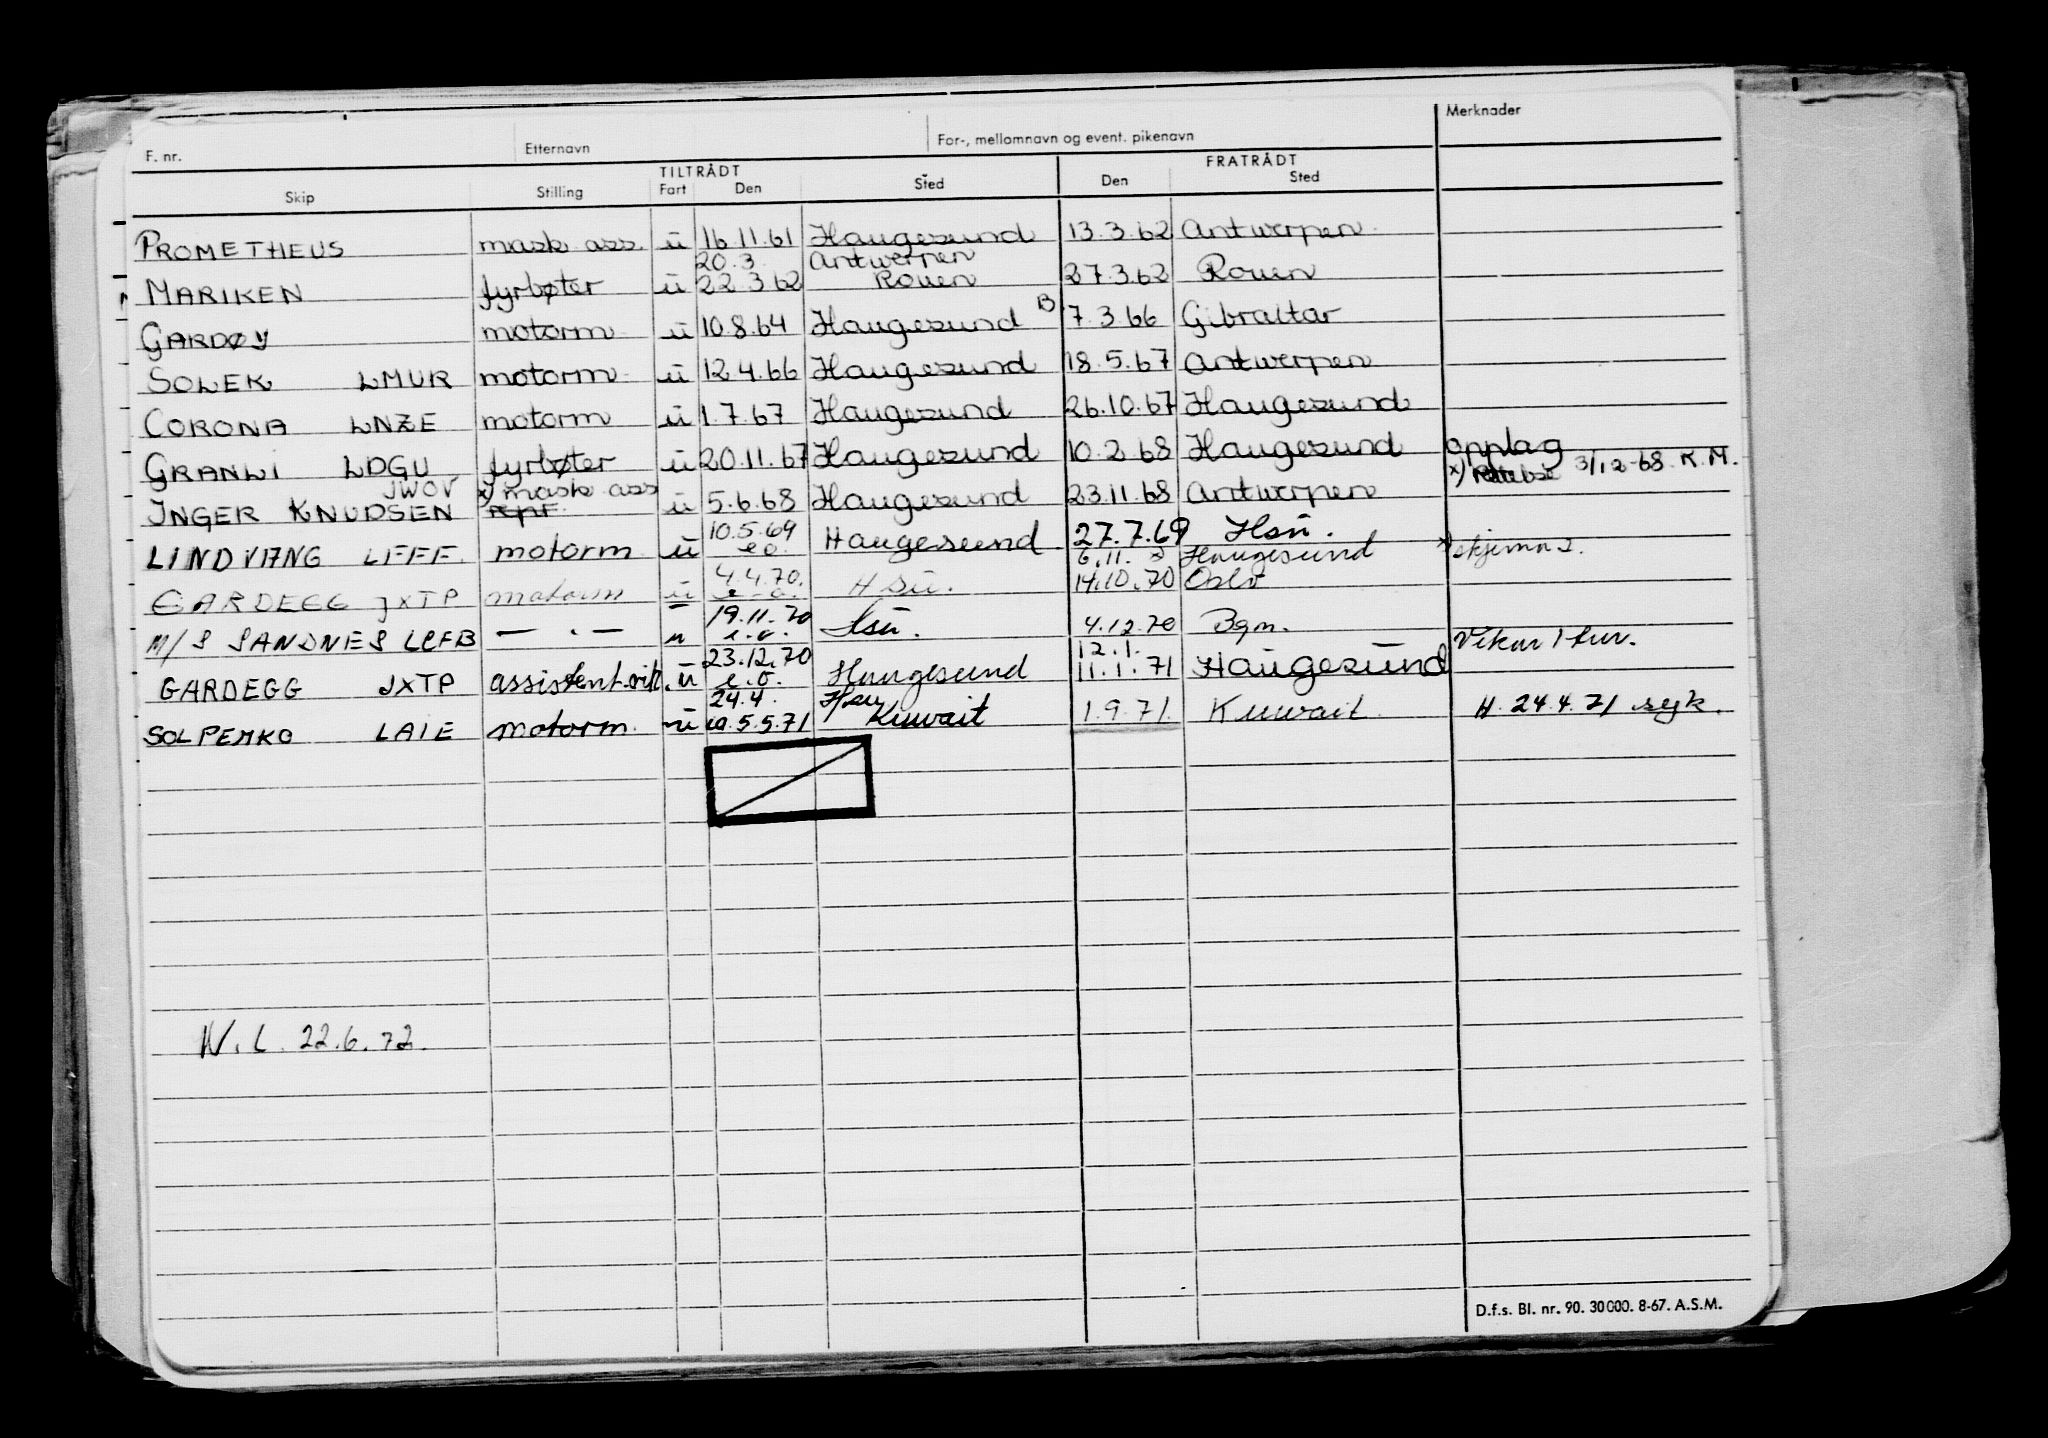 F. nr. Etternavn For-, mellomnavn og event. pikenavn Merknader
TILTRÅDT FRATRÅDT
Skip Stilling Fart Den Sted Den Sted
PROMETHEUS mask. ass. u 16.11.61 Haugesund 13.3.62 Antwerpen
20.3. Antwerpen
MARIKEN fyrbøter u 22.3.62 Rouen 27.3.62 Rouen
GARDØY motorm u 10.8.64 Haugesund B 7.3.66 Gibraltar
SOLEK LMUR motorm u 12.4.66 Haugesund 18.5.67 Antwerpen
CORONA LNZE motorm u 1.7.67 Haugesund 26.10.67 Haugesund
GRANLI LDGU fyrbøter u 20.11.67 Haugesund 10.2.68 Haugesund opplag
JWOV x) mask ass x) 3/12-68. K.M.
INGER KNUDSEN repr. u 5.6.68 Haugesund 23.11.68 Antwerpen
10.5.69
LINDVANG LFFF motorm u e.o. Haugesund 27.7.69 Hsu.
4.4.70. 6.11. x) Haugesund x) skjema 2.
GARDEGG JXTP motorm u e.o. Hsu. 14.10.70 Oslo
19.11.70
M/S SANDNES LCFB — . — u e.o. Hsu. 4.12.70 Bgn. Vikar 1 tur.
23.12.70 12.1.
GARDEGG JXTP assistent.vik. u e.o. Haugesund 11.1.71 Haugesund
24.4. Hsu
SOLPEMKO LAIE motorm. u e.o. 5.5.71 Kuwait 1.9.71. Kuwait H. 24.4.71 syk.
N.L. 22.6.72.
D.f.s. Bl. nr. 90. 30000. 8-67. A.S.M.